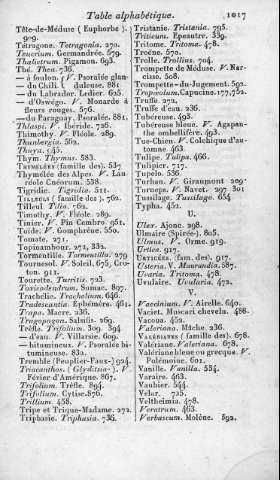 Table alphabétique. 1017
Tête-de-Méduse ( Euphorbe ).
909.
Tétragone. Tetragonia. 270.
Teucrium. Germandrée. 579.
Thalictrum. Pigamon. 693.
Thé. Thea. 736.
— à foulon. ( V. Psoralée glan-
— du Chili. { duleuse. 881
— du Labrador. Ledier. 625.
— d'Oswégo. V. Monarde à
fleurs rouges. 576.
— du Paraguay. Psoralée. 881.
Thlaspi. V. Ibéride. 726.
Thimothy. V. Fléole. 289.
Thunbergia. 562.
Thuya. 645.
Thym. Thymus. 583.
THYMÉLÉES (famille des). 537
Thymélée des Alpes. V. Lau-
réole Cnéorum. 538.
Tigridie. Tigridia. 511.
TILLEULS ( famille des ). 762.
Tilleul. Tilia. 762.
Timothy. V. Fléole. 289.
Tinier. V. Pin Cembro. 951.
Tuïde. V. Gomphrène. 550.
Tomate. 271.
Topinambour. 271, 332.
Tormentille. Tormentilla. 279
Tournesol. V. Soleil, 675, Cro-
ton. 911.
Tourette. Turritis. 723.
Toxicodendrum. Sumac. 897.
Trachélie. Trachelium. 646.
Tradescantia. Ephémère. 461.
Trapa. Macre. 236.
Tragopogon. Salsifis. 269.
Trèfle. Trifolium. 309. 894
— d'eau. V. Villarsie. 609.
— bitumineux. V. Psoralée bi-
tumineuse. 882.
Tremble (Peuplier-Faux-) 924.
Triacanthos. ( Glyditsia- ). V.
Févier d'Amérique. 867.
Trifolium. Trèfle. 894.
Trifolium. Cytise. 876.
Trillium. 458.
Tripe et Trique-Madame. 272.
Triphasie. Triphasia. 736.
Tristanie. Tristania. 795.
Triticum. Epeautre. 339.
Tritome. Tritoma. 478.
Troëne. 570.
Trolle. Trollius. 704.
Trompette de Méduse. V. Nar-
cisse. 508.
Trompette-du-Jugement. 592.
Tropæolum. Capucine. 177, 752.
Truffe. 272.
Truffe d'eau. 236.
Tubéreuse. 493.
Tubéreuse bleue. V. Agapan-
the ombellifère. 493.
Tue-Chien. V. Colchique d'au-
tomne. 463
Tulipe. Tulipa. 466.
Tulipier. 717.
Tupelo. 536
Turban. V. Giraumont 209.
Turneps. V. Navet. 297 301
Tussilage. Tussilago. 654
Typha. 452.
U.
Ulex. Ajonc. 298.
Ulmaire (Spirée-). 805.
Ulmus. V. Orme. 919.
Urtica. 917.
URTICÉES. (fam. des). 917.
Usteria. V. Maurandia. 587.
Uvaria. Tritoma. 478.
Uvulaire. Uvularia. 472.
V.
Vaccinium. V. Airelle. 640.
Vaciet. Muscari chevelu. 488.
Vacoua. 452.
Valeriana. Mâche. 236.
VALÉRIANES ( famille des). 678.
Valériane. Valeriana. 678.
Valériane bleue ou grecque. V.
Polémoine. 601.
Vanille. Vanilla. 534.
Varaire. 463.
Vaubier. 544.
Velar. 725.
Veltheimia. 478.
Veratrum. 463.
Verbascum. Molène. 592.